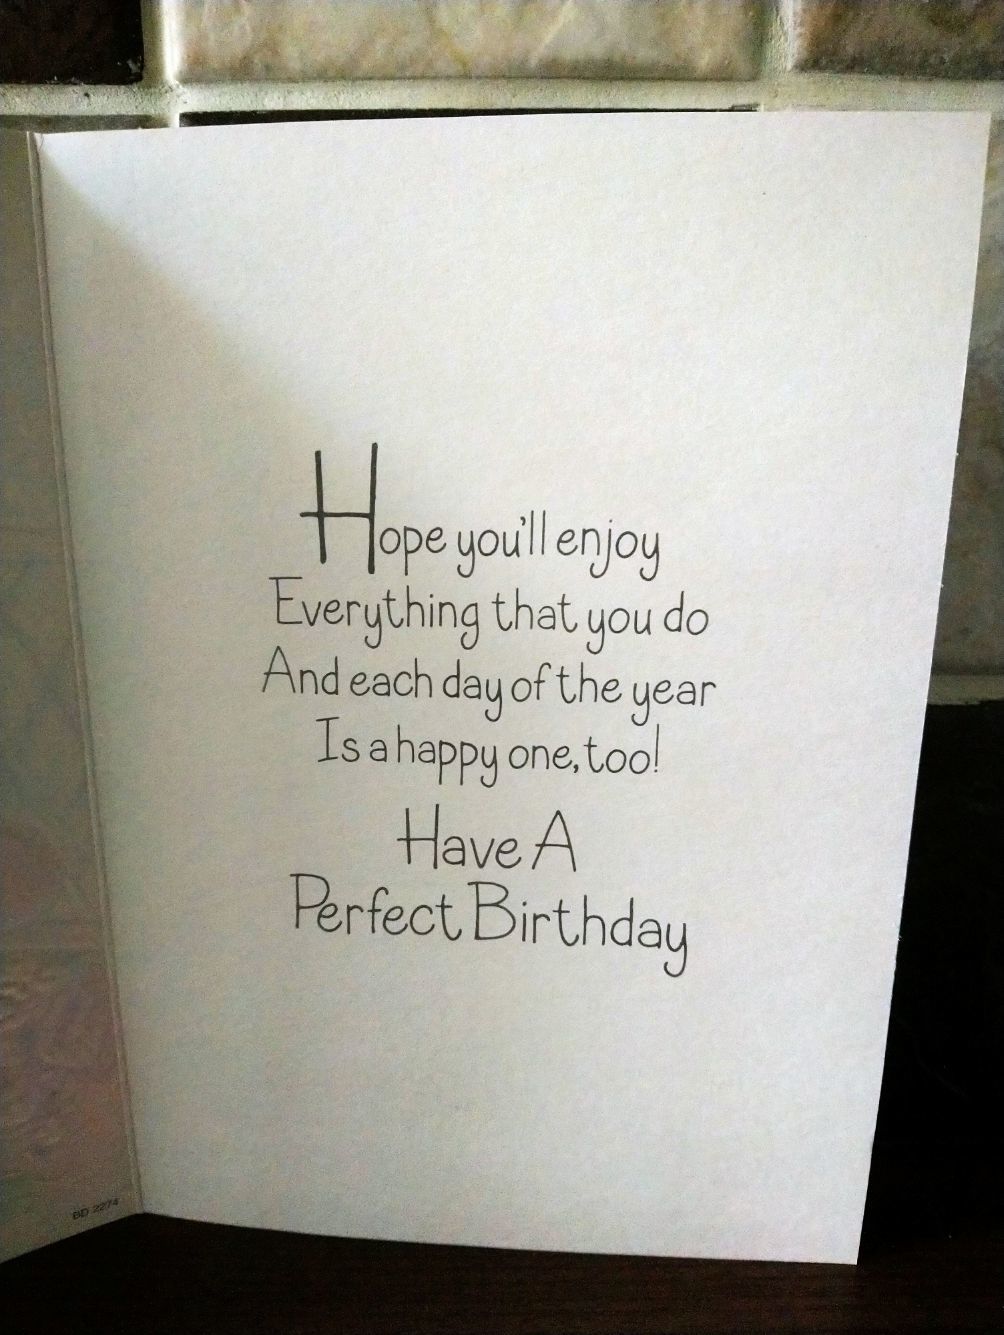 Hope you'll enjoy
Everything that you do
And each day of the year
Is a happy one, too!
Have A
Perfect Birthday
BD 2274